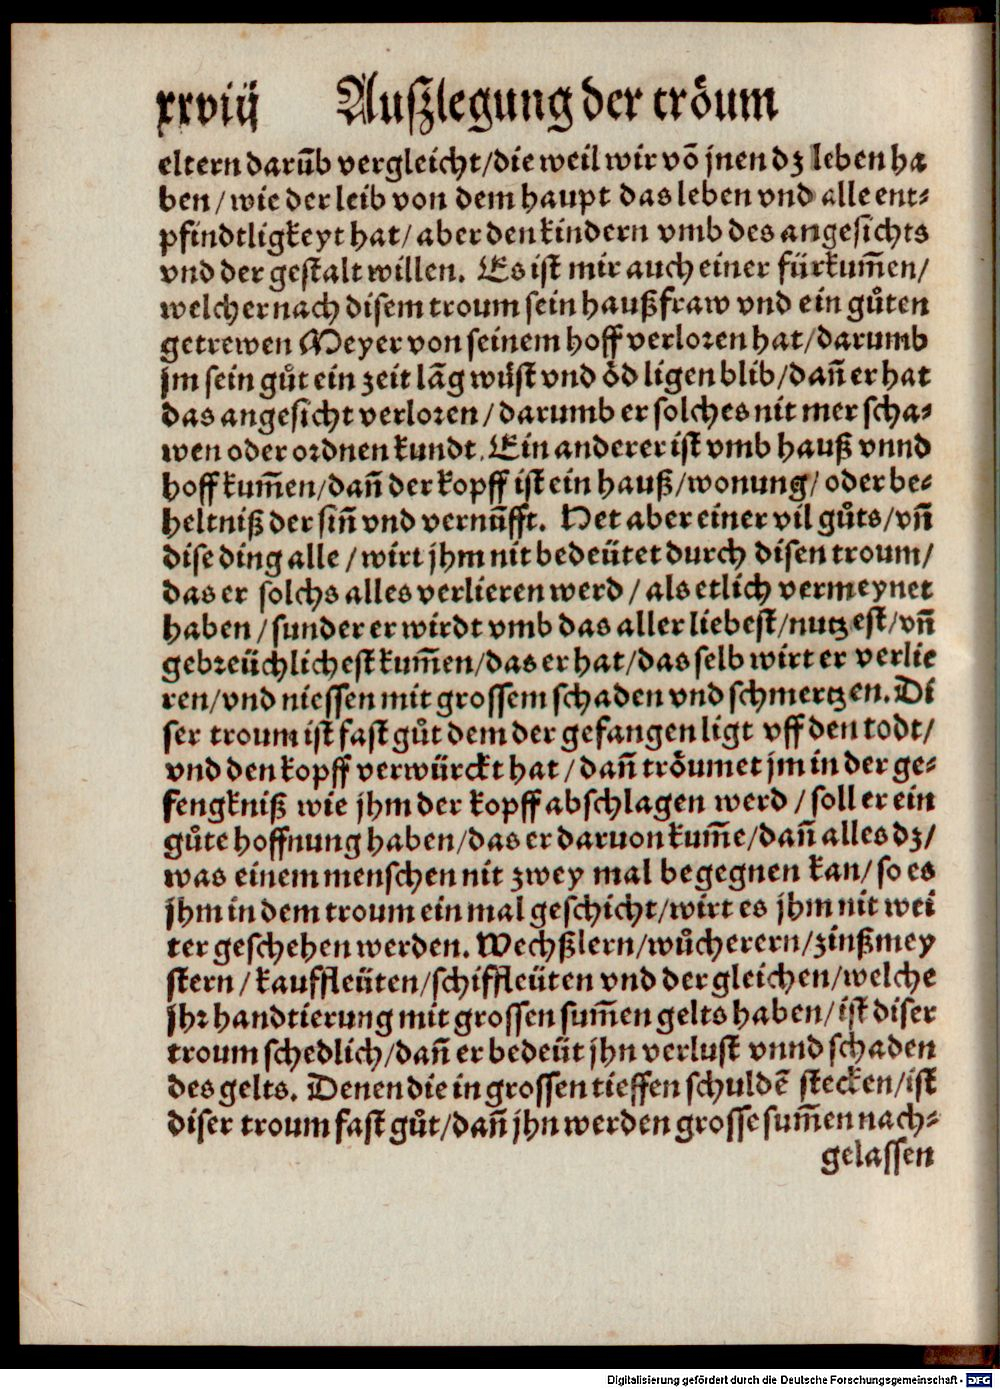 xxviij Auſzlegung der trőum
eltern darūb vergleicht/die weil wir vō jnen dz leben ha
ben/wie der leib von dem haupt das leben vnd alle ent⸗
pfindtligkeyt hat/aber den kindern vmb des angeſichts
vnd der geſtalt willen. Es iſt mir auch einer fürkum̄en/
welcher nach diſem troum ſein haußfraw vnd ein gůten
getrewen Meyer von ſeinem hoff verloꝛen hat/darumb
jm ſein gůt ein zeit lāg wüſt vnd őd ligen blib/dañ er hat
das angeſicht verloꝛen/darumb er ſolches nit mer ſcha⸗
wen oder oꝛdnen kundt. Ein anderer iſt vmb hauß vnnd
hoff kum̄en/dañ der kopff iſt ein hauß/wonung/oder be⸗
heltniß der ſiñ vnd vernūfft. Het aber einer vil gůts/vñ
diſe ding alle/wirt jhm nit bedeütet durch diſen troum/
das er ſolchs alles verlieren werd/als etlich vermeynet
haben/ſunder er wirdt vmb das aller liebeſt/nutzeſt/vñ
gebꝛeüchlicheſt kum̄en/das er hat/das ſelb wirt er verlie
ren/vnd nieſſen mit groſſem ſchaden vnd ſchmertzen. Di
ſer troum iſt faſt gůt dem der gefangen ligt vff den todt/
vnd den kopff verwürckt hat/dañ trőumet jm in der ge⸗
fengkniß wie jhm der kopff abſchlagen werd/ſoll er ein
gůte hoffnung haben/das er daruon kum̄e/dañ alles dz/
was einem menſchen nit zwey mal begegnen kan/ſo es
jhm in dem troum ein mal geſchicht/wirt es jhm nit wei
ter geſchehen werden. Wechßlern/wůcherern/zinßmey
ſtern/kauffleüten/ſchiffleüten vnd der gleichen/welche
jhꝛ handtierung mit groſſen ſum̄en gelts haben/iſt diſer
troum ſchedlich/dañ er bedeüt jhn verluſt vnnd ſchaden
des gelts. Denen die in groſſen tieffen ſchuldē ſtecken/iſt
diſer troum faſt gůt/dañ jhn werden groſſe ſum̄en nach⸗
gelaſſen
Digitalisierung gefördert durch die Deutsche Forschungsgemeinschaft - DFG